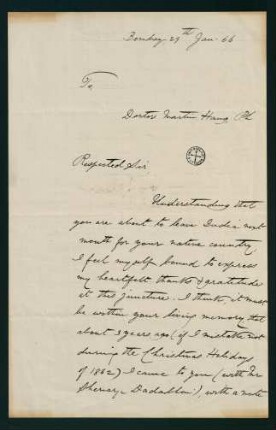 Bombay 29th Jan. 66
To,
Doctor Martin Haug Ph
Respected Sir
Understanding that
you are about to leave India next
month for your native country
I feel myself bound to express
my heartfelt thanks & gratitude
at this juncture. I think, it must
be within your living memory that
about 3 years ago (if I mistake not
during the Christmas Holidays
of 1862) I came to you (with Mr
Dadabhai), with a note